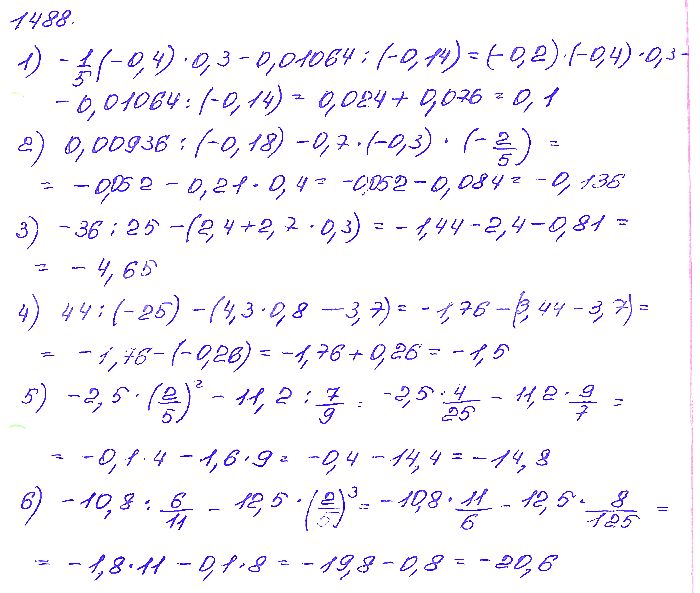 1488.
1) -1/5(-0,4)·0,3-0,01064:(-0,14)=(-0,2)·(-0,4)·0,3-
-0,01064:(-0,14)= 0,024+0,076=0,1
2) 0,00936:(-0,18)-0,7·(-0,3)·(-2/5)=
= -0,052-0,21·0,4=-0,052-0,084=-0,136
3) -36:25-(2,4+2,7·0,3)=-1,44-2,4-0,81=
= -4,65
4) 44:(-25)-(4,3·0,8-3,7)=-1,76-(3,44-3,7)=
= -1,76-(-0,26)=-1,76+0,26=-1,5
5) -2,5·(2/5)²-11,2:7/9=-2,5·4/25-11,2·9/7=
= -0,1·4-1,6·9=-0,4-14,4=-14,8
6) -10,8:6/11-12,5·(2/5)³=-10,8·11/6-12,5·8/125=
= -1,8·11-0,1·8=-19,8-0,8=-20,6